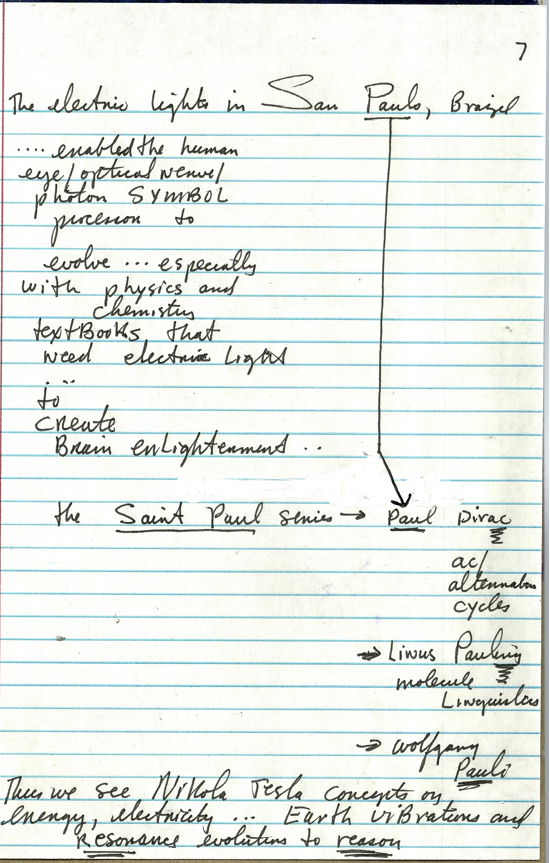 7
The electric lights in San Paulo, Brazil
.... enabled the human
eye/optical nerve/
photon SYMBOL
process to
evolve ... especially
with physics and
chemistry
textBooks that
need electric Light
...
to
create
Brain enLightenment ..
the Saint Paul series → Paul Dirac
ac/
alternation
cycles
→ Linus Pauling
molecule
Linguistics
→ wolfgang
Pauli
Thus we see Nikola Tesla concepts on
energy, electricity ... Earth viBrations and
Resonance evolutions to reason